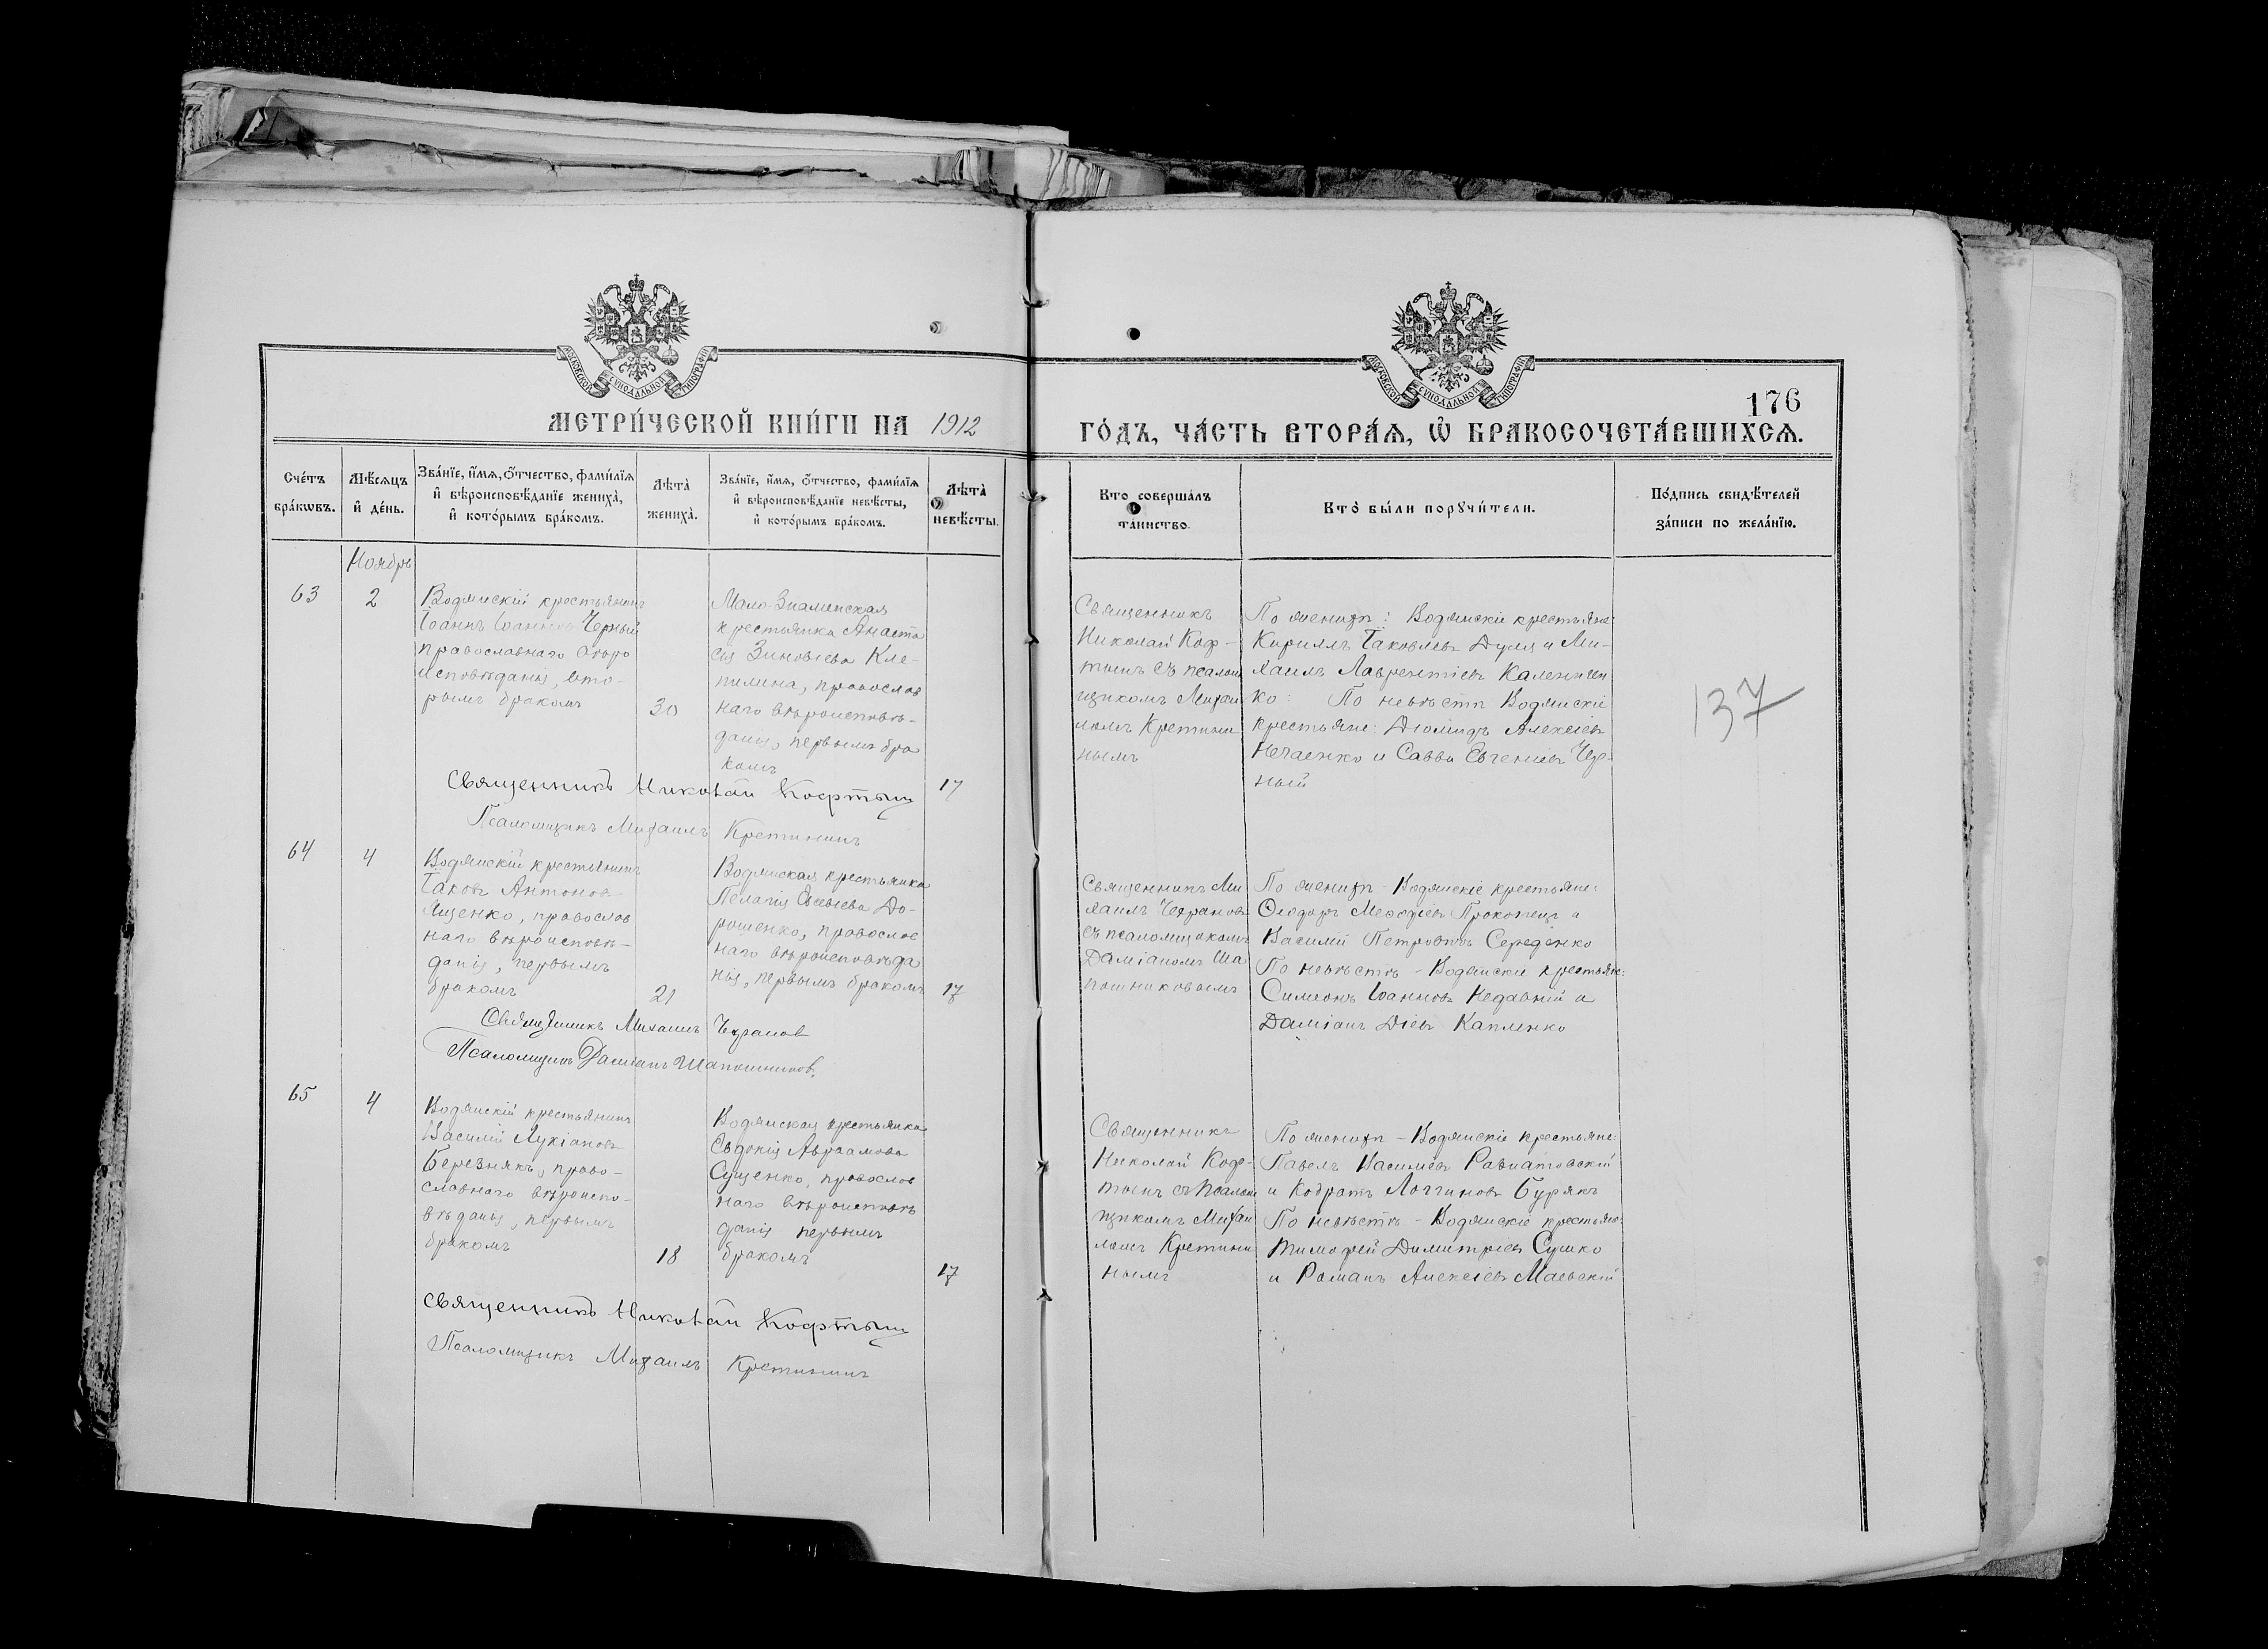 МОСКОВСКОЙ СѴНОДАЛЬНОЙ ТИПОГРАФІИ
МОСКОВСКОЙ СѴНОДАЛЬНОЙ ТИПОГРАФІИ
176
МЕТРИ́ЧЕСКОЙ КНИ́ГИ НА 1912
ГО́ДЪ, ЧА́СТЬ ВТОРА́Ѧ, Ѽ БРАКОСОЧЕТА́ВШИХСѦ.
Сче́тъ
бра́кѡвъ.
Мѣ́сѧцъ
и҆ де́нь.
Зва́нїе, и҆́мѧ, ѻ҆́тчество, фами́лїѧ
и҆ вѣроисповѣ́данїе жениха̀,
и҆ кото́рымъ бра́комъ.
Лѣта̀
жениха̀.
Зва́нїе, и҆́мѧ, ѻ҆́тчество, фами́лїѧ
и҆ вѣроисповѣ́данїе невѣ́сты,
и҆ кото́рымъ бра́комъ.
Лѣта̀
невѣ́сты.
Кто̀ соверша́лъ
та́инство.
Кто̀ бы́ли порꙋчи́тели.
По́дпись свидѣ́телей
за́писи по жела́нїю.
Ноябрь
63
2
Водянскій крестьянинъ
Іоаннъ Іоанновъ Черный
православнаго вѣро
исповѣданія, вто-
рымъ бракомъ
30
Мало-Знаменская
крестьянка Анаста
сія Зиновіева Кле-
пилина, православ
наго вѣроисповѣ-
данія, первымъ бра
комъ
17
Священникъ
Николай Коф-
тынъ съ псалом
щикомъ Михаи
ломъ Кретини
нымъ
По женихѣ: Водянскіе крестьяне:
Кириллъ Іаковлевъ Дуля и Ми-
хаилъ Лаврентіевъ Каленичен
ко: По невѣстѣ Водянскіе
крестьяне: Діомидъ Алексіевъ
Нечаенко и Савва Евгеніевъ Чер-
ный
137
Священникъ Николай Кофтынъ
Псаломщикъ Михаилъ Кретининъ
64
4
Водянскій крестьянинъ
Іаковъ Антоновъ
Ященко, православ
наго вѣроисповѣ-
данія, первымъ
бракомъ
21
Водянская крестьянка
Пелагія Евсевіева До-
рошенко, православ
наго вѣроисповѣда
нія, первымъ бракомъ
17
Священникъ Ми
хаилъ Чехрановъ
съ псаломщикомъ
Даміаномъ Ша
пошниковымъ
По женихѣ - Водянскіе крестьяне:
Ѳеодоръ Меѳодіевъ Прокопецъ и
Василій Петровъ Середенко
По невѣстѣ - Водянскіе крестьяне:
Симеонъ Іоанновъ Недавній и
Даміанъ Діевъ Капленко
Священникъ Михаилъ Чехранов
Псаломщикъ Даміанъ Шапошников.
65
4
Водянскій крестьянинъ
Василій Лукіановъ
Березнякъ, право-
славнаго вѣроиспо-
вѣданія, первымъ
бракомъ
18
Водянская крестьянка
Евдокія Авраамова
Сущенко, православ
наго вѣроисповѣ
данія первымъ
бракомъ
17
Священникъ
Николай Коф-
тынъ съ псалом
щикомъ Михаи
ломъ Кретини
нымъ
По женихѣ - Водянскіе крестьяне:
Павелъ Василіевъ
и Кодратъ Логгиновъ Бурякъ
По невѣстѣ - Водянскіе крестьяне:
Тимофей Димитріевъ Сушко
и Романъ Алексіевъ Маевскій
Священникъ Николай Кофтынъ
Псаломщикъ Михаилъ Кретининъ